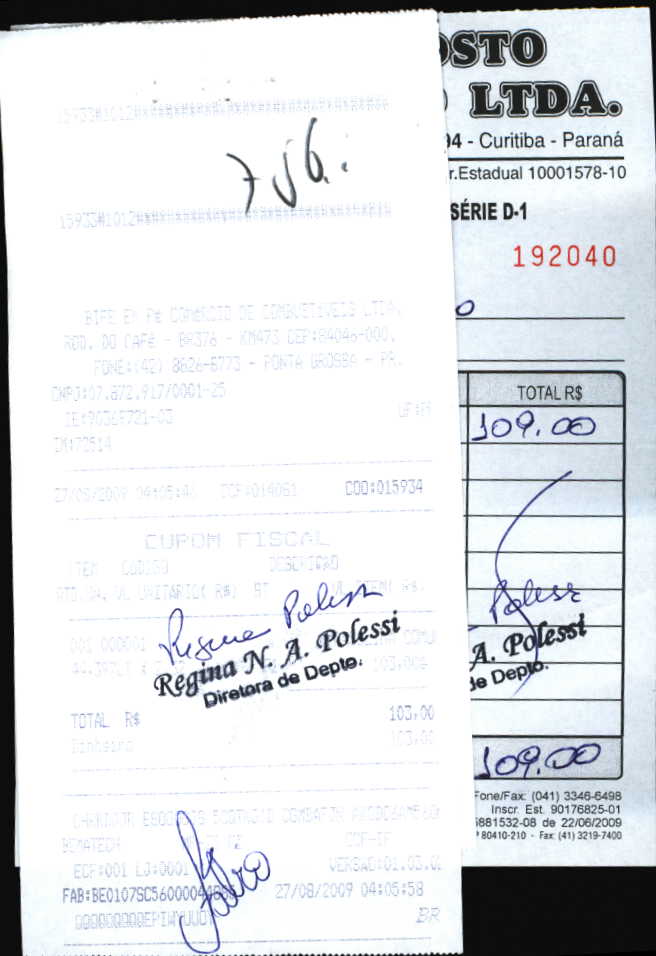 15933#1012
756.
15933#1012
BIFE EM Pé COMéRCIO DE COMBUSTíVEIS LTDA.
ROD. DO CAFé - BR376 - KM473 CEP:84046-000.
FONE:(42) 8826-6773 - PONTA GROSSA - PR.
CNPJ:07.872.917/0001-25
IE:90369721-03
IM:73514
27/08/2009 04:05:41 CCF:014061 COO:015934
CUPOM FISCAL
ITEM CODIGO DESCRICAO
QTD. UN. VL UNITARIO( R$) ST VL ITEM( R$)
001 000001
Regina Polessi
Regina N. A. Polessi
Diretora de Depto.
TOTAL R$ 103,00
Dinheiro 103,00
BEMATECH ECF-IF
ECF:001 LJ:0001 VERSAO:01.03.0
27/08/2009 04:05:58
BR
OSTO
LTDA.
04 - Curitiba - Paraná
r.Estadual 10001578-10
SÉRIE D-1
192040
TOTAL R$
109.00
Polessi
A. Polessi
de Depto.
109.00
Fone/Fax: (041) 3346-6498
Inscr. Est. 90176825-01
881532-08 de 22/06/2009
80410-210 - Fax: (41) 3219-7400